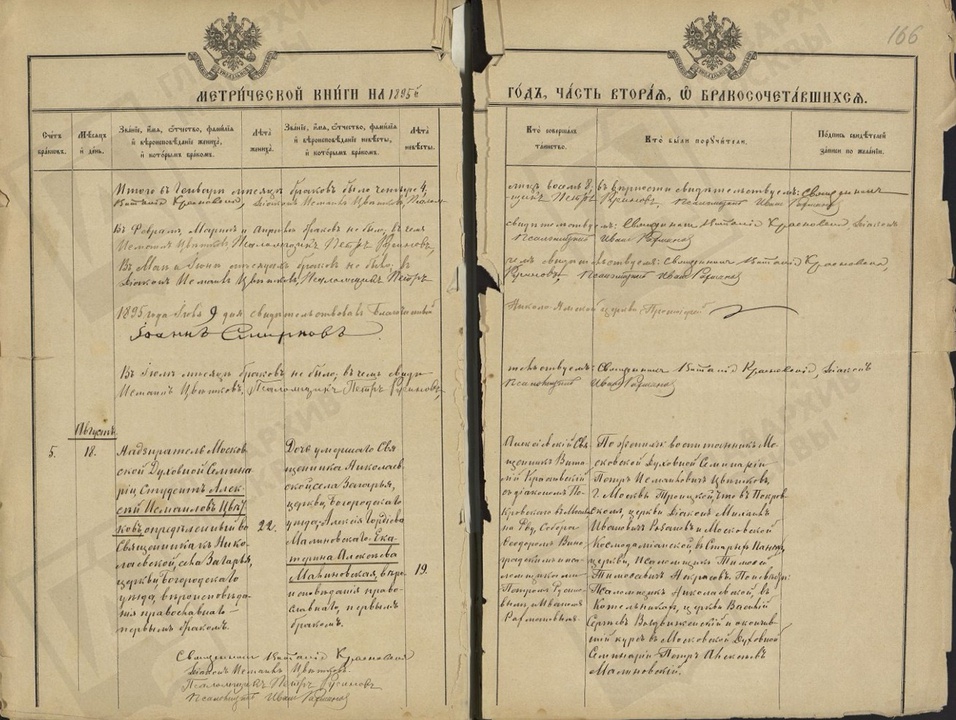 166
МЕТРИ́ЧЕСКОЙ КНИ́ГИ НА 1895й
ГО́ДЪ, ЧА́СТЬ ВТОРА́Я, Ѿ БРАКОСОЧЕТА́ВШИХСЯ.
Сче́тъ браковъ.
Мѣсяцъ и́ день.
Зва́ніе, и́мя, ѻ́тчество, фами́лія и́ вѣроисповѣ́даніе жениха̀, и́ кото́рымъ бра́комъ.
Лѣ́та жениха̀.
Зва́ніе, и́мя, ѻ́тчество, фами́лія и́ вѣроисповѣ́даніе невѣ́сты, и́ кото́рымъ бра́комъ.
Лѣ́та невѣ́сты.
Кто̀ соверша́лъ та́инство.
Кто̀ бы́ли поручи́тели.
По́дпись свидѣ́телей за́писи по жела́нію.
Итого въ Генварѣ мѣсяцѣ браковъ было четыре 4,
Виталій Красновскій, Діаконъ Исмаилъ Цвѣтковъ,
лицъ восемь 8, въ вѣрности свидѣтельствуемъ: Священникъ
Петръ Русиновъ, Псаломщикъ Иванъ
Въ Февралѣ, Мартѣ и Апрѣлѣ браковъ не было, въ чемъ
Исмаилъ Цвѣтковъ, Псаломщикъ Петръ Русиновъ,
свидѣтельствуемъ: Священникъ Виталій Красновскій, Діаконъ
Псаломщикъ Иванъ
Въ Маѣ и Іюнѣ мѣсяцахъ браковъ не было, въ
Діаконъ Исмаилъ Цвѣтковъ, Псаломщикъ Петръ
чемъ свидѣтельствуемъ: Священникъ Виталій Красновскій,
Русиновъ, Псаломщикъ Иванъ
1895 года Іюля 9 дня свидѣтельствовалъ Благочинный
Іоаннъ Смирновъ
Николо-Ямской церкви Протоіерей
Въ Іюлѣ мѣсяцѣ браковъ не было; въ чемъ свидѣ
Исмаилъ Цвѣтковъ, Псаломщикъ Петръ Русиновъ,
тельствуемъ: Священникъ Виталій Красновскій, Діаконъ
Псаломщикъ Иванъ
Августъ.
5.
18.
Надзиратель Москов
ской Духовной Семина
ріи Студентъ Алек
сѣй Исмаиловъ Цвѣт
ковъ опредѣленный во
Священника къ Нико
лаевской, села Загарья,
церкви, Богородскаго
уѣзда, вѣроисповѣда
нія православнаго
первымъ бракомъ.
22.
Дочь умершаго Свя
щенника Николаев
ской села Загарья,
церкви, Богородскаго
уѣзда, Алексія
Малиновскаго, Ека
терина Алексѣева
Малиновская, вѣро
исповѣданія право
славнаго, первымъ
бракомъ.
19.
Свя
щенникъ Вита
лій Красновскій
съ діакономъ По
кровскаго
на Рву, Собора
Ѳеодоромъ Вино
градскимъ и пса
ломщиками
Петромъ Руси
новымъ, Иваномъ
По женихѣ: воспитанникъ Мо
сковской Духовной Семинаріи
Петръ Исмаиловичъ Цвѣтковъ,
г. Москвы Троицкой, что въ Покров
скомъ, церкви Діаконъ
Ивановичъ и Московской
Космодаміанской, въ Старыхъ Панехъ,
церкви, Псаломщикъ Тимоѳей
Тимоѳеевичъ Некрасовъ. По невѣстѣ:
Псаломщикъ Николаевской, въ
Котельникахъ, церкви Василій
Сергѣевъ Воздвиженскій и окончив
шій курсъ въ Московской Духовной
Семинаріи Петръ Алексѣевъ
Малиновскій.
Священникъ Виталій Красновскій
Діаконъ Исмаилъ Цвѣтковъ
Псаломщикъ Петръ Русиновъ
Псаломщикъ Иванъ